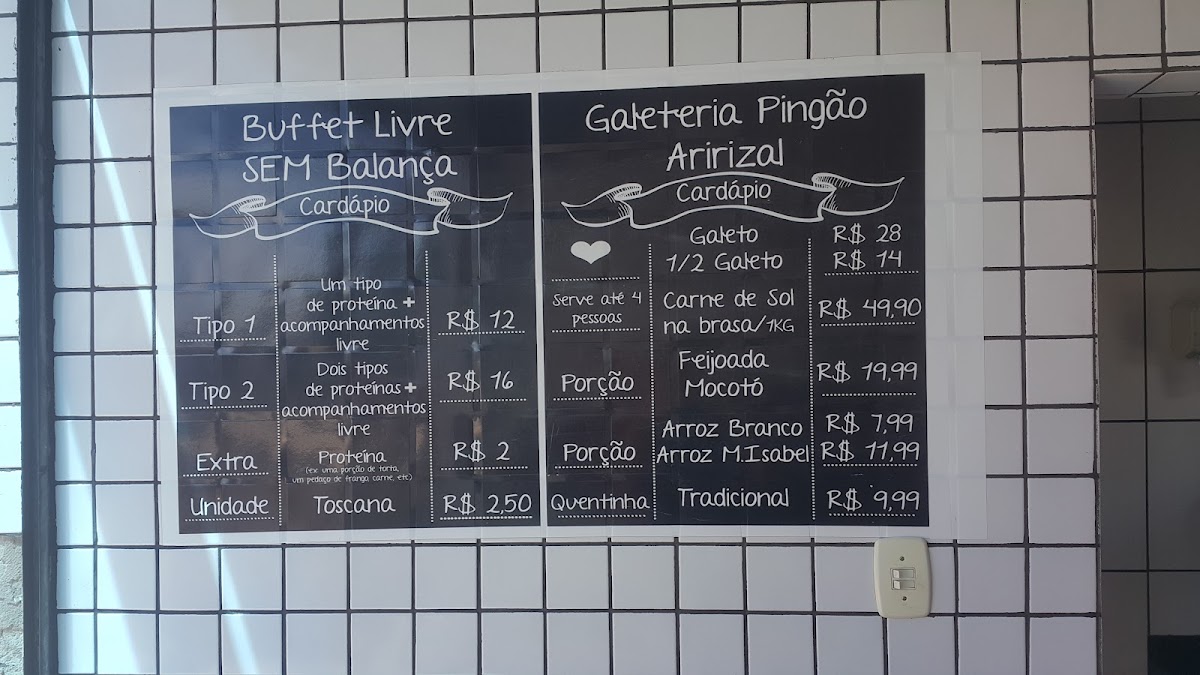 Buffet Livre
SEM Balança
Cardápio
Tipo 1
Um tipo
de proteína +
acompanhamentos
livre
R$ 12
Tipo 2
Dois tipos
de proteínas +
acompanhamentos
livre
R$ 16
Extra
Proteína
(ex: uma porção de torta,
um pedaço de frango, carne, etc)
R$ 2
Unidade
Toscana
R$ 2,50
Galeteria Pingão
Aririzal
Cardápio
Galeto
R$ 28
1/2 Galeto
R$ 14
Serve até 4
pessoas
Carne de Sol
na brasa/1KG
R$ 49,90
Porção
Feijoada
Mocotó
R$ 19,99
Porção
Arroz Branco
R$ 7,99
Arroz M.Isabel
R$ 11,99
Quentinha
Tradicional
R$ 9,99